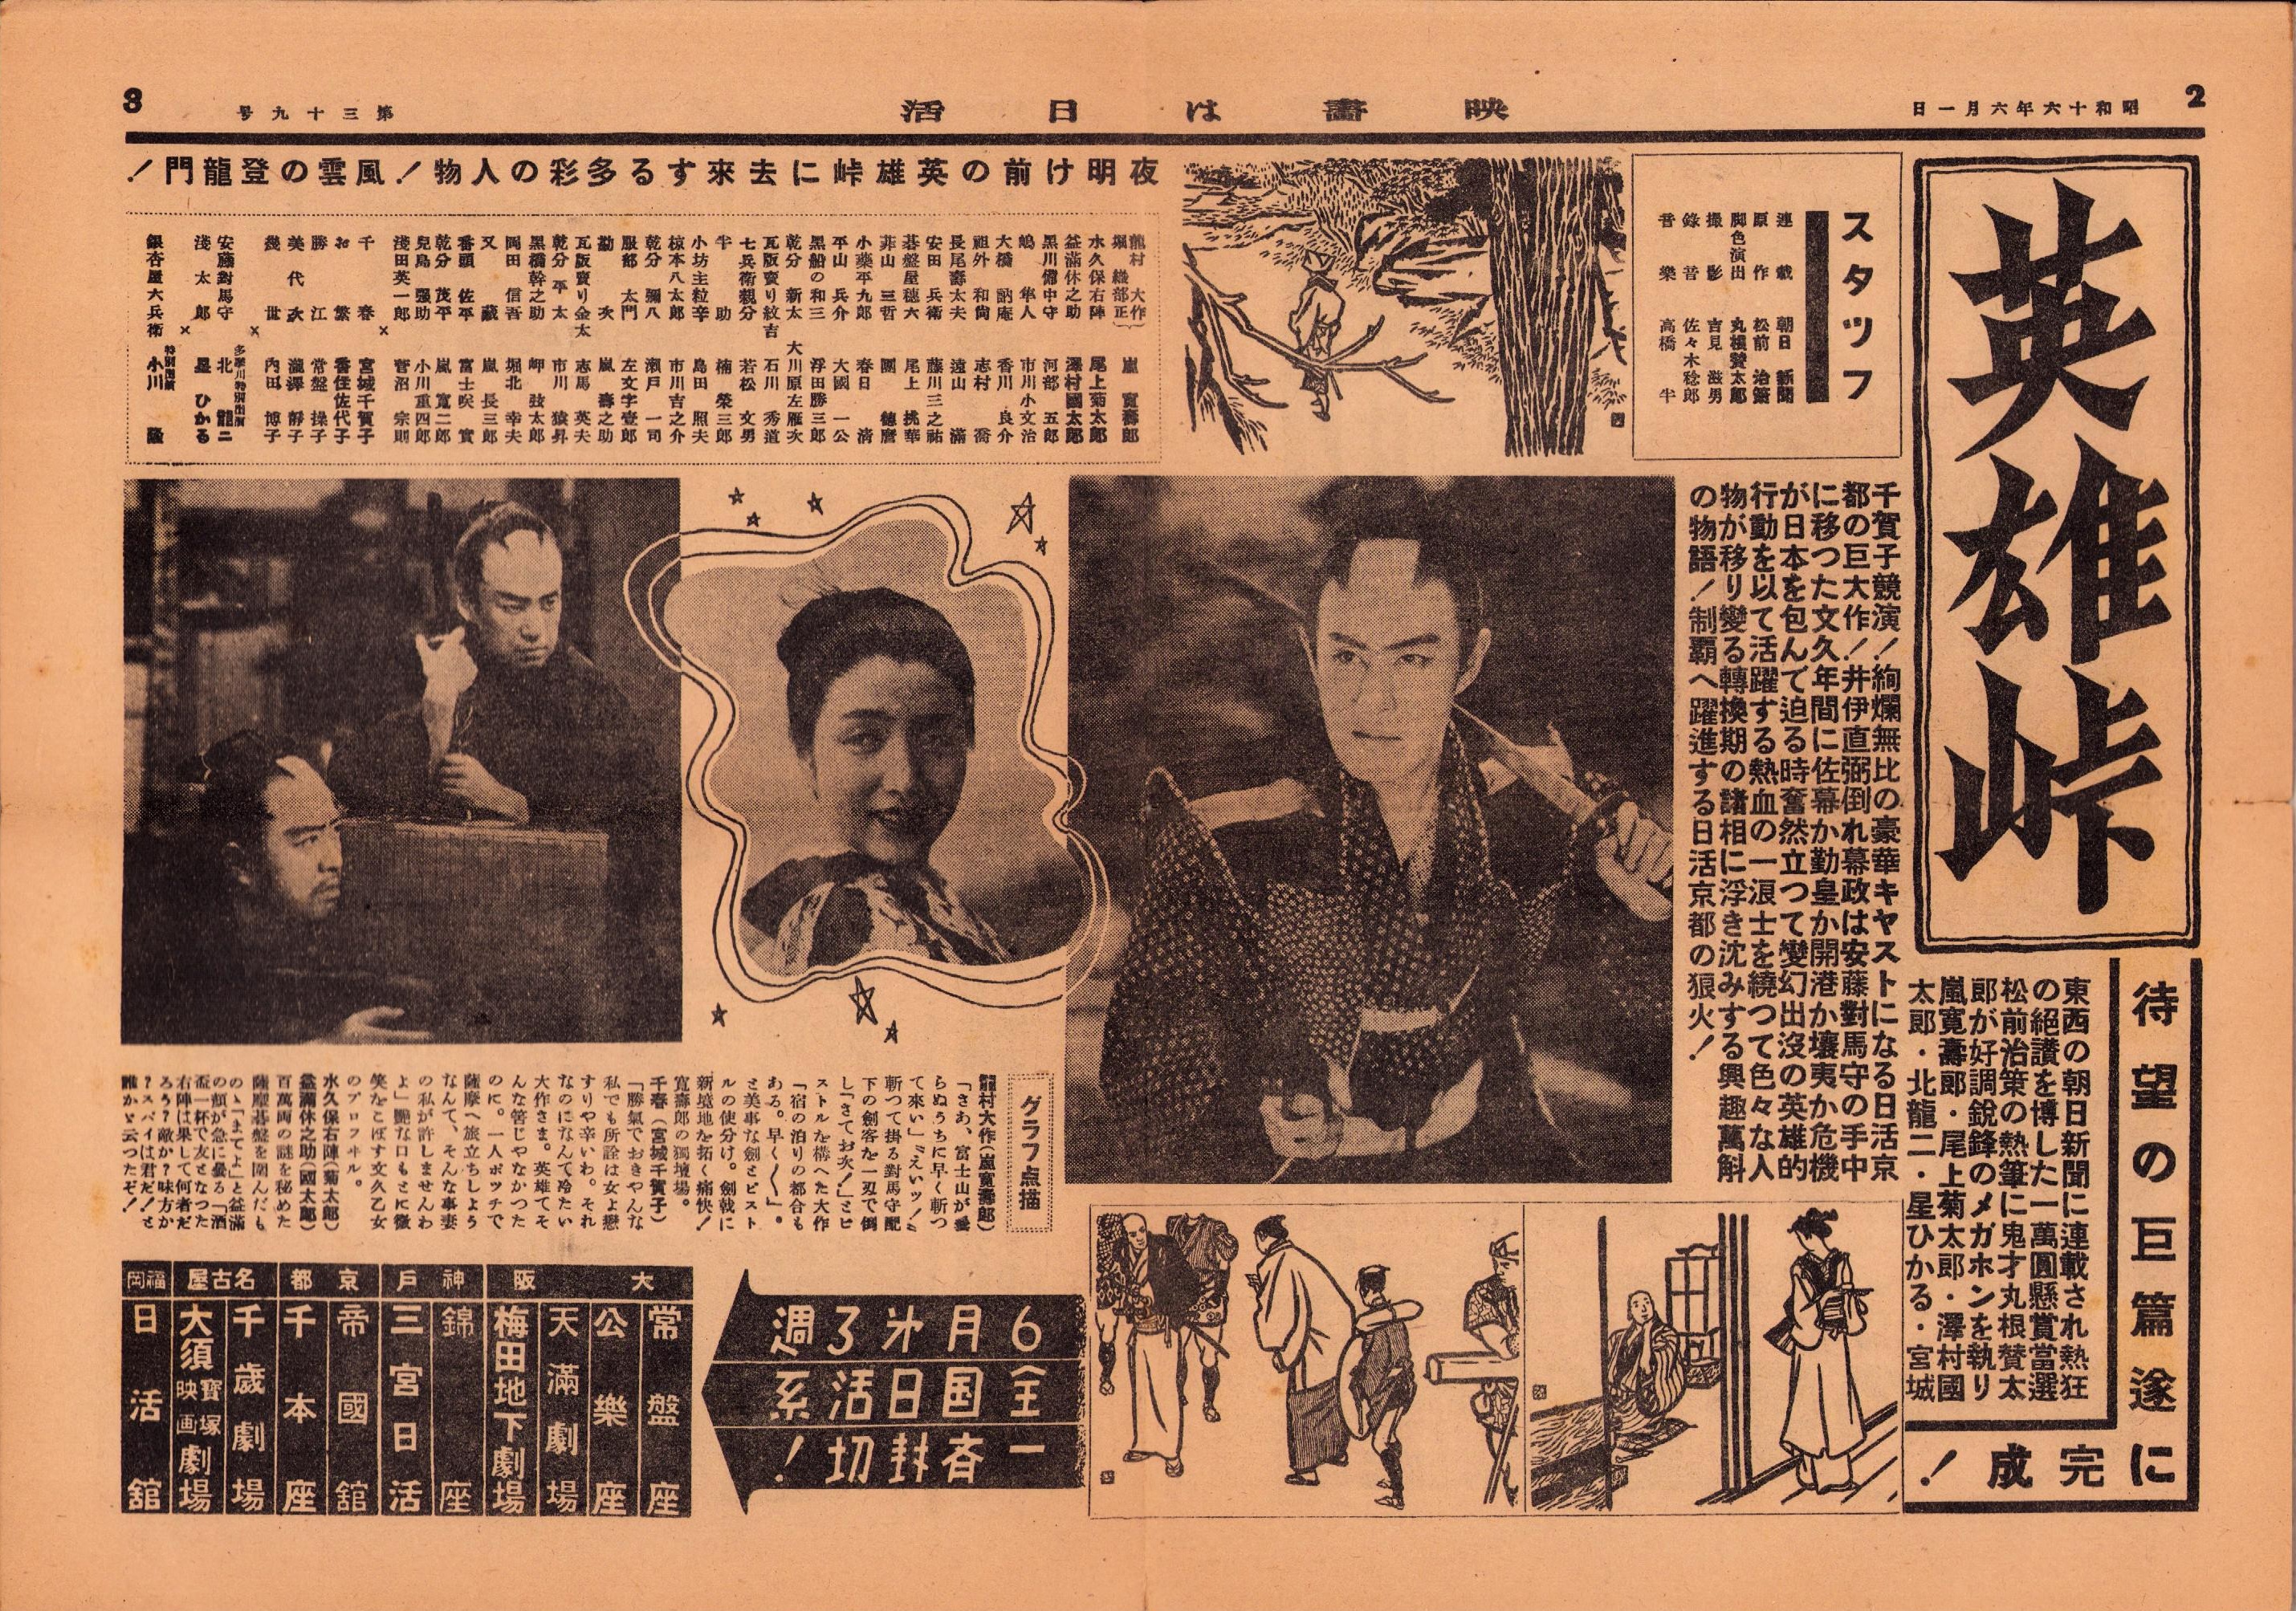 2
昭和十六年六月一日
映畫は日活
第三十九号
3
英雄峠
待望の巨篇遂に完成!
東西の朝日新聞に連載され熱狂
の絕讃を博した一萬圓懸賞當選
松前治策の熱筆に鬼才丸根賛太
郎が好調銳鋒のメガホンを執り
嵐寬壽郎・尾上菊太郎・澤村國
太郎・北龍二・星ひかる・宮城
千賀子競演!絢爛無比の豪華キヤストになる日活京
都の巨大作!井伊直弼倒れ幕政は安藤對馬守の手中
に移つた文久年間に佐幕か勤皇か開港か壤夷か危機
が日本を包んで迫る時奮然立つて變幻出沒の英雄的
行動を以て活躍する熱血の一浪士を繞つて色々な人
物が移り變る轉換期の諸相に浮き沈みする興趣萬斛
の物語!制覇へ躍進する日活京都の狼火!
スタツフ
連載 朝日新聞
原作 松前治策
脚色演出 丸根賛太郎
撮影 吉見滋男
錄音 佐々木稔郎
音樂 高橋半
夜明け前の英雄峠に去來する多彩の人物!風雲の登龍門!
龍村大作
堀 織部正 嵐寬壽郎
水久保右陣 尾上菊太郎
益滿休之助 澤村國太郎
黑川備中守 河部五郎
嶋隼人 市川小文治
大橋訥庵 香川良介
祖外和尙 志村喬
長尾壽太夫 遠山滿
安田兵衛 藤川三之祐
碁盤屋穗六 尾上桃華
菲山三哲 團德麿
小藥平九郎 春日清
平山兵介 大國一公
黑船の和三 浮田勝三郎
乾分新太 大川原左雁次
瓦版賣り紋吉 石川秀道
七兵衛親分 若松文男
半助 楠榮三郎
小坊主粒辛 島田照夫
椋本八太郎 市川吉之介
乾分彌八 瀨戶一司
服部太門 左文字壹郎
勘次 嵐壽之助
瓦版賣り金太 志馬英夫
乾分平太 市川猿昇
黑橋幹之助 岬弦太郎
岡田信吾 堀北幸夫
又藏 嵐長三郎
番頭佐平 富士咲實
乾分茂平 嵐寬二郎
兒島强助 小川重四郎
淺田英一郎 菅沼宗則
×
千春 宮城千賀子
お繁 香住佐代子
勝江 常盤操子
美代次 瀧澤靜子
幾世 內田博子
×
安藤對馬守 多摩川特別出演 北龍二
淺太郎 星ひかる
×
銀杏屋六兵衛 特別出演 小川隆
グラフ点描
龍村大作(嵐寬壽郎)
「さあ、富士山が曇
らぬうちに早く斬つ
て來い」〝えいツ!〟
斬つて掛る對馬守配
下の劍客を一刃で倒
し「さてお次!」とピ
ストルを構へた大作
「宿の泊りの都合も
ある。早く〱」。
と美事な劍とピスト
ルの使分け。劍戟に
新境地を拓く痛快!
寬壽郎の獨壇場。
千春(宮城千賀子)
「勝氣でおきやんな
私でも所詮は女よ戀
すりや辛いわ。それ
なのになんて冷たい
大作さま。英雄てそ
んな筈じやなかつた
のに。一人ボツチで
薩摩へ旅立ちしよう
なんて、そんな事妻
の私が許しませんわ
よ」艶な口もとに微
笑をこぼす文久乙女
のプロフヰル。
水久保右陣(菊太郎)
益滿休之助(國太郎)
百萬両の謎を秘めた
薩摩碁盤を圍んだも
の、「まてよ」と益滿
の顏が急に曇る「酒
盃一杯で友となつた
右陣は果して何者だ
ろう?敵か?味方か
?スパイは君だ!と
誰かゞ云つたぞ!
6月㐧了週
全国日活系
一斉封切!
大阪
常盤座
公樂座
天滿劇場
梅田地下劇場
神戶
錦座
三宮日活
京都
帝國舘
千本座
名古屋
千歲劇場
大須寶塚映画劇場
福岡
日活舘